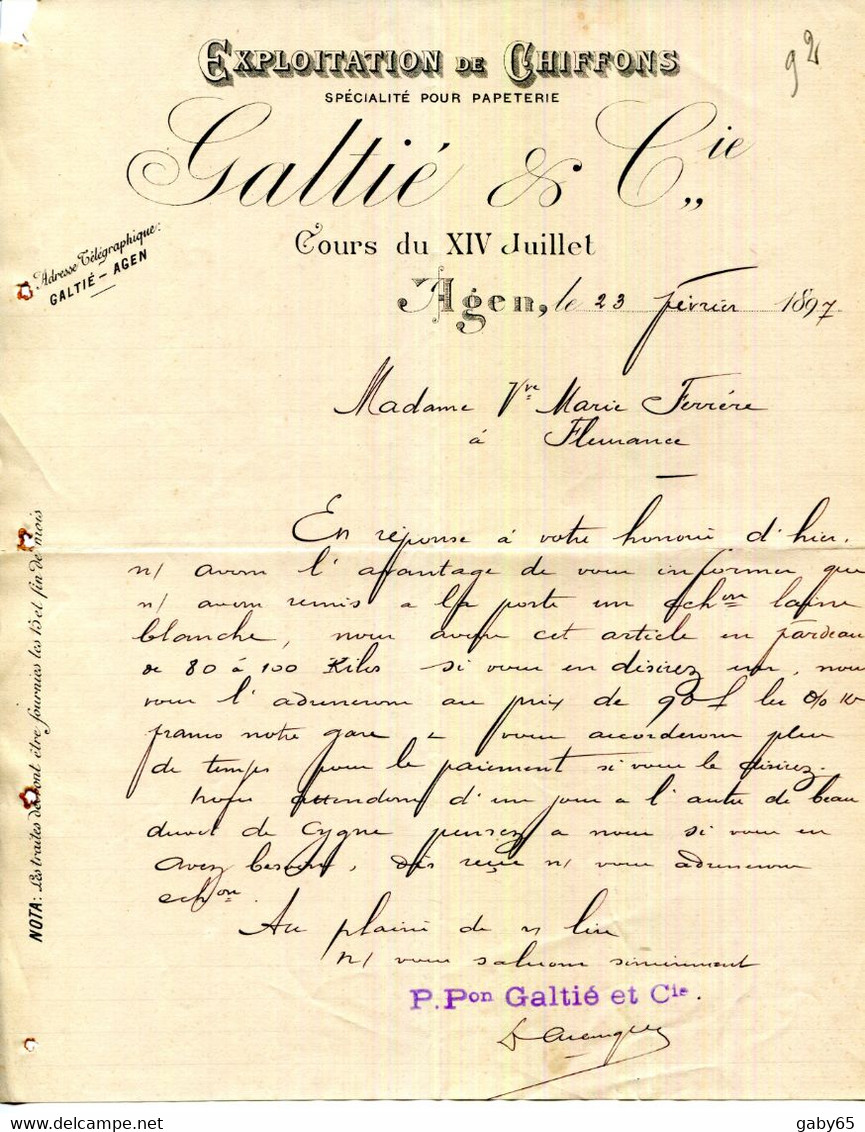 92
EXPLOITATION DE CHIFFONS
SPÉCIALITÉ POUR PAPETERIE
Galtié & Cie
Cours du XIV Juillet
Adresse Télégraphique:
GALTIÉ - AGEN
Agen, le 23 février 1897
Madame Vve Marie Ferrére
à Fleurance
En réponse à votre honoré d'hier,
n/ avons l'avantage de vous informer que
n/ avons remis a la poste un échon laine
blanche, nous avons cet article en fardeau
de 80 à 100 Kilos si vous en désirez un, nous
vous l'adresserons au prix de 90f les % K
franco notre gare & vous accorderons plus
de temps pour le paiement si vous le désirez.
Nous attendons d'un jour a l'autre de beau
duvet de Cygne pensez a nous si vous en
avez besoin, dès reçue n/ vous adresserons
échon.
Au plaisir de n/ lire
n/ vous saluons sincèrement
P. Pon Galtié et Cie.
NOTA: Les traites devront être fournies les 15 et fin de mois
gaby65